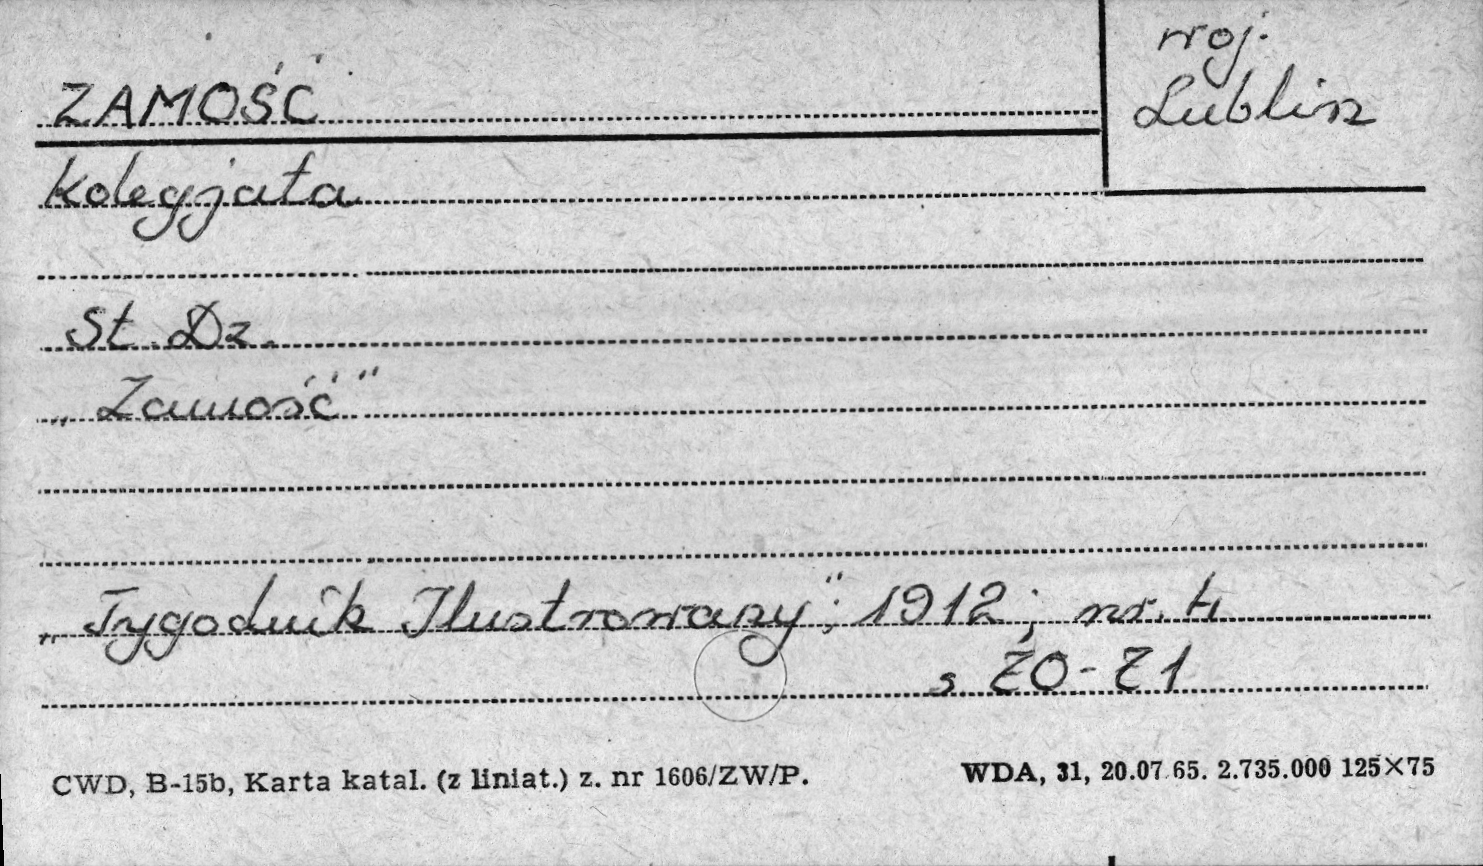 woj.
Lublin
ZAMOŚĆ
Kolegjata
St. Dz.
„Zamość"
„Tygodnik Ilustrowany"; 1912; nr. 4
s 20-21
CWD, B-15b, Karta katal. (z liniat.) z. nr 1606/ZW/P.
WDA, 31, 20.07.65. 2.735.000 125×75